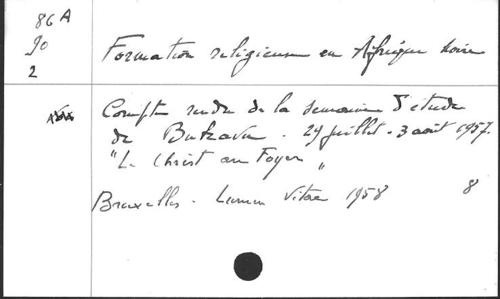 86 A
90
2
Formation religieuse en Afrique noire
Compte rendu de la semaine d'étude
de Bukavu. 29 juillet - 3 août 1957.
"Le Christ au Foyer"
Bruxelles. Lumen Vitae 1958 8